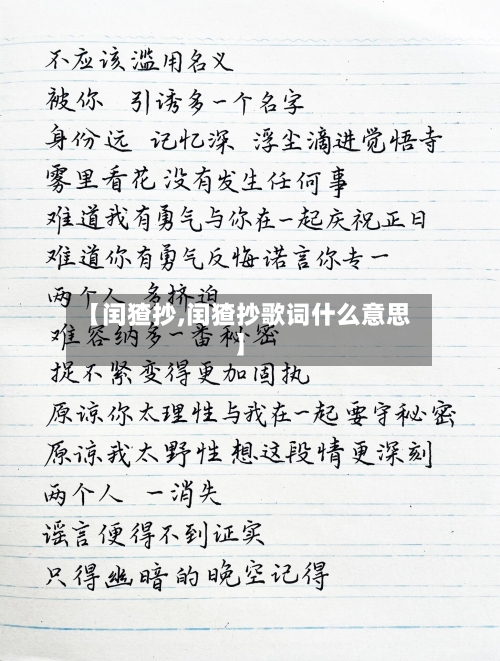 不应该滥用名义
被你 引诱多一个名字
身份远 记忆深 浮尘滴进觉悟寺
雾里看花没有发生任何事
难道我有勇气与你在一起庆祝正日
难道你有勇气反悔诺言你专一
两个人 多挤迫
【闰猹抄,闰猹抄歌词什么意思
】
难容纳多一番秘密
捉不紧变得更加固执
原谅你太理性与我在一起要守秘密
原谅我太野性想这段情更深刻
两个人 一消失
谣言便得不到证实
只得幽暗的晚空记得